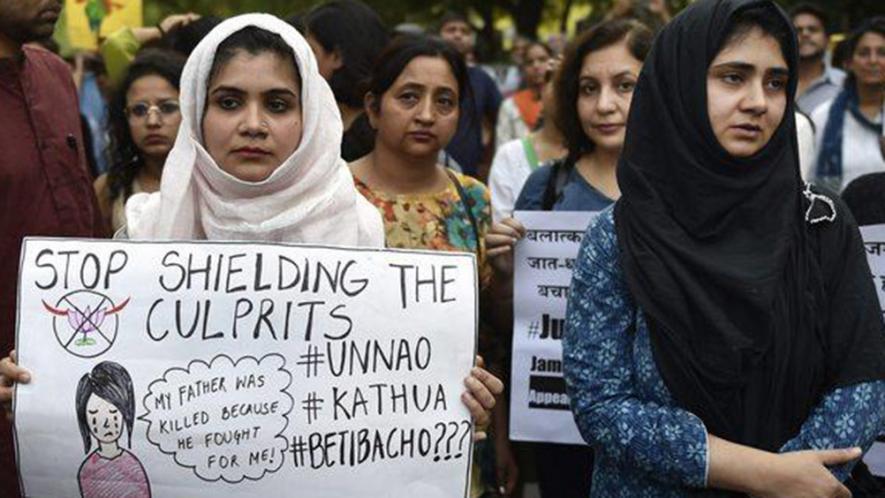 STOP SHIELDING THE
CULPRITS
#UNNAO
#KATHUA
#BETIBACHO???
MY FATHER WAS
KILLED BECAUSE
HE FOUGHT
FOR ME!
जात-
बचा
Jam
Appea